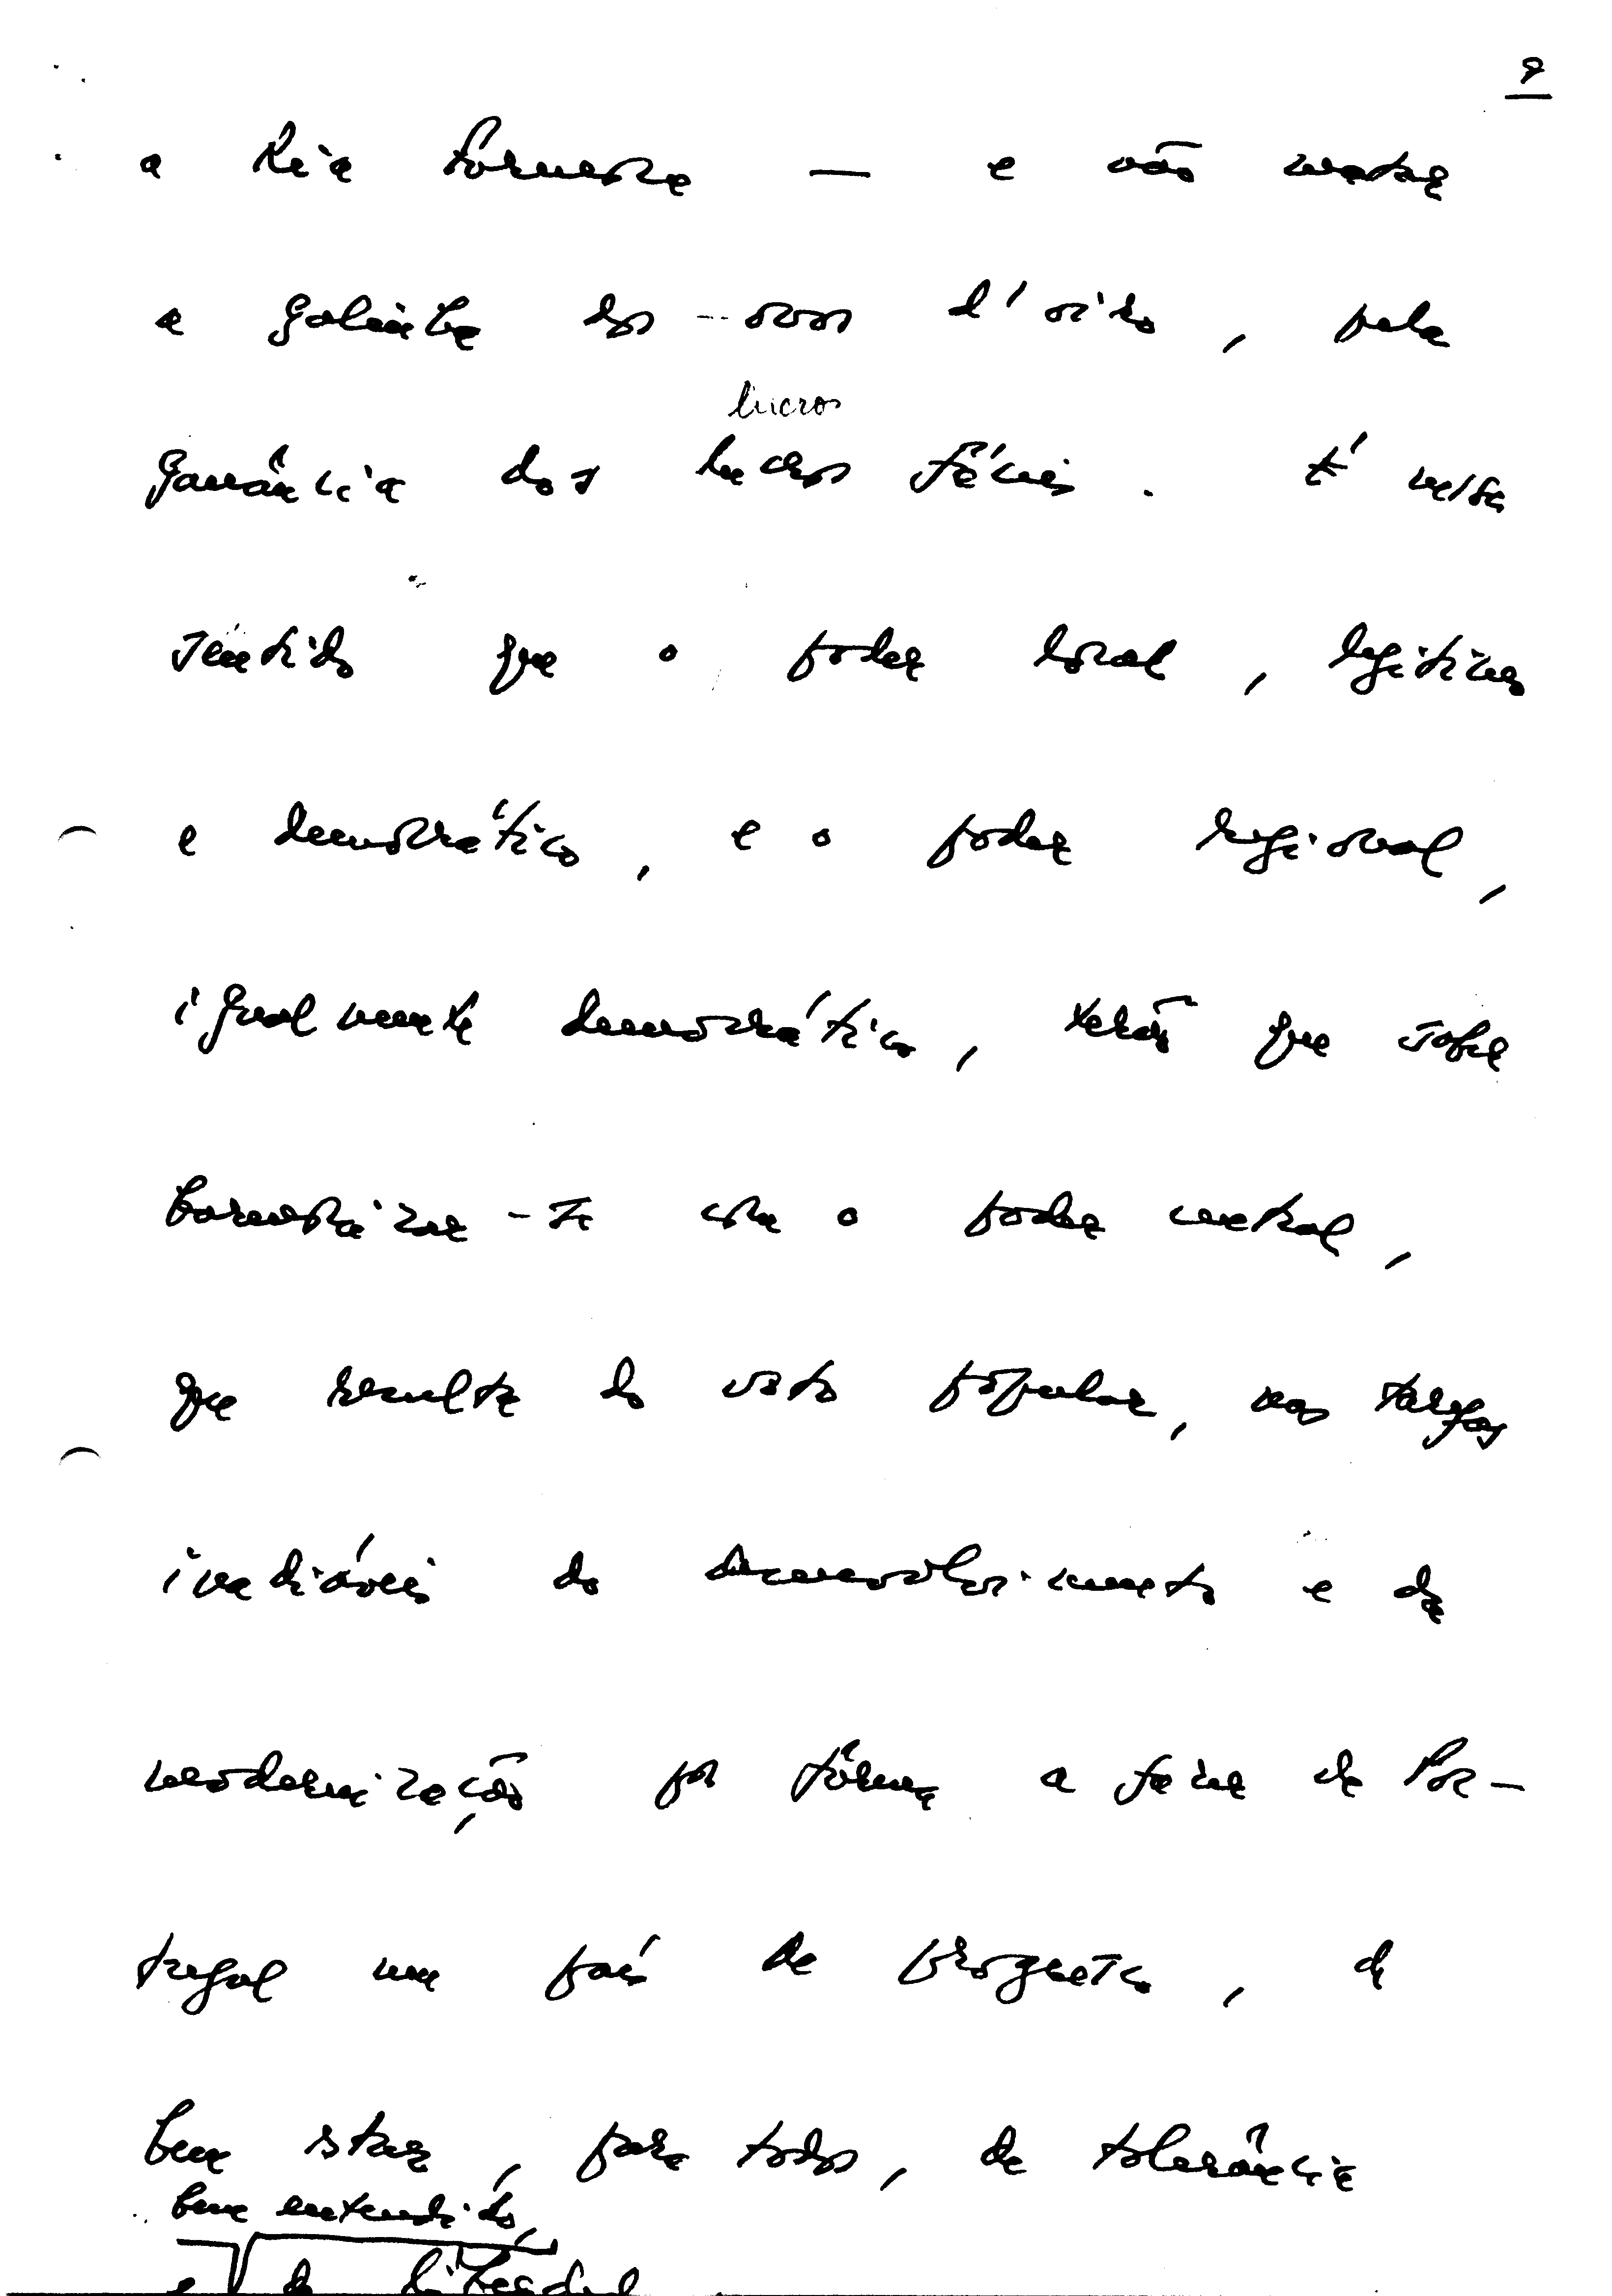 9
a Ria Formosa — e não matar
a galinha dos ovos d'oiro, pela
lucros
ganância dos lucros fáceis. É nesse
sentido que o poder local, legítimo
e democrático, e o poder regional,
igualmente democrático, terão que saber
harmonizar-se com o poder central,
que resulta do voto popular, nas tarefas
inadiáveis do desenvolvimento e da
modernização por forma a fazer de Por-
tugal um país de progresso, de
bem star, para todos, de tolerância
bem entendido,
e de liberdade